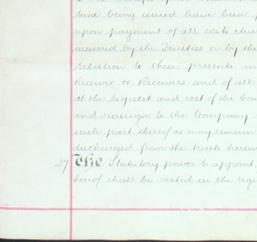 time being issued have been
upon payment of all costs
incurred by the Trustees or by the
relation to these presents
Receiver or Receivers and of all
at the request and cost of the
and reassign to the Company
such part thereof as may remain
discharged from the trusts
27 The Statutory power to appoint
hereof shall be vested in the